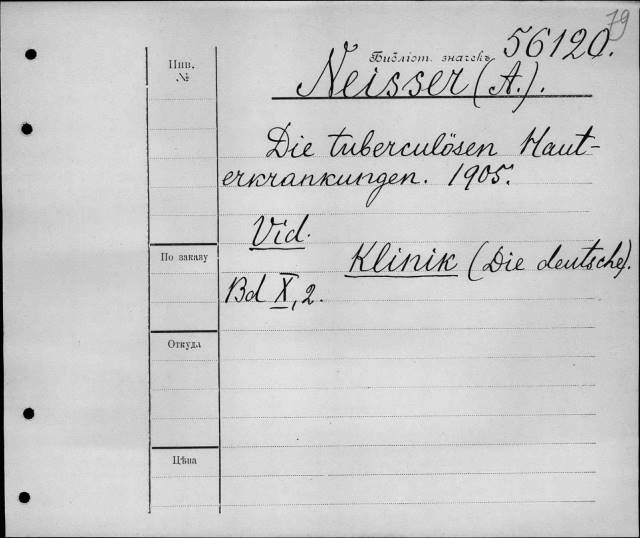 79
Библіот. значекъ 56120.
Инв.
№
Neisser (A.).
Die tuberculösen Haut-
erkrankungen. 1905.
Vid.
По заказу
Klinik (Die deutsche).
Bd X, 2.
Откуда
Цѣна